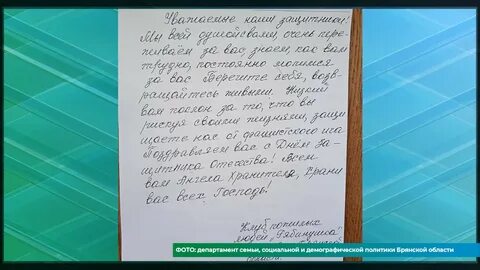 Уважаемые наши защитники!
Мы всей душой с вами, очень пере-
живаем за вас знаем, как вам
трудно, постоянно молимся
за вас Берегите себя, возв-
ращайтесь живыми. Низкий
вам поклон за то, что вы
рискуя своими жизнями, защи
щаете нас от фашистского ига
Поздравляем вас с Днём За-
щитника Отечества! Всем
вам Ангела Хранителя, Храни
вас всех Господь!
Клуб пожилых
людей „Рябинушка"
ФОТО: департамент семьи, социальной и демографической политики Брянской области